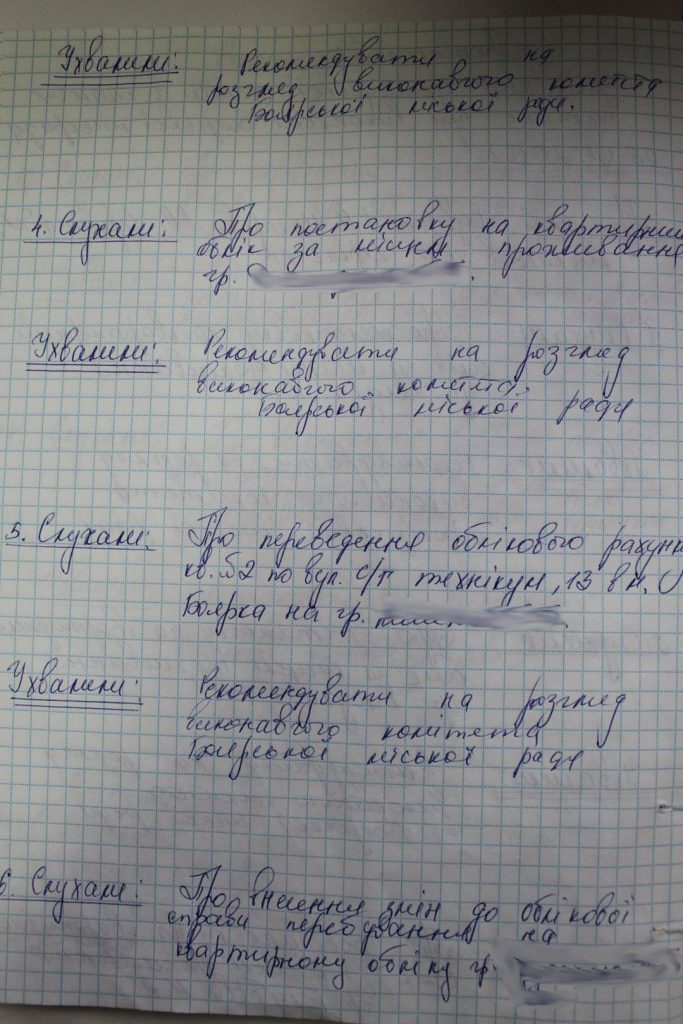 Ухвалили: Рекомендувати на
розгляд виконавчого комітета
Боярської міської ради.
4. Слухали: Про постановку на квартирний
облік за місцем проживання
гр.
Ухвалили: Рекомендувати на розгляд
виконавчого комітета
Боярської міської ради
5. Слухали: Про переведення облікового рахунк
кв. 52 по вул. С/г технікум, 13 в м.
Боярка на гр.
Ухвалили: Рекомендувати на розгляд
виконавчого комітета
Боярської міської ради
6. Слухали: Про внесення змін до облікової
справи перебування на
квартирному обліку гр.